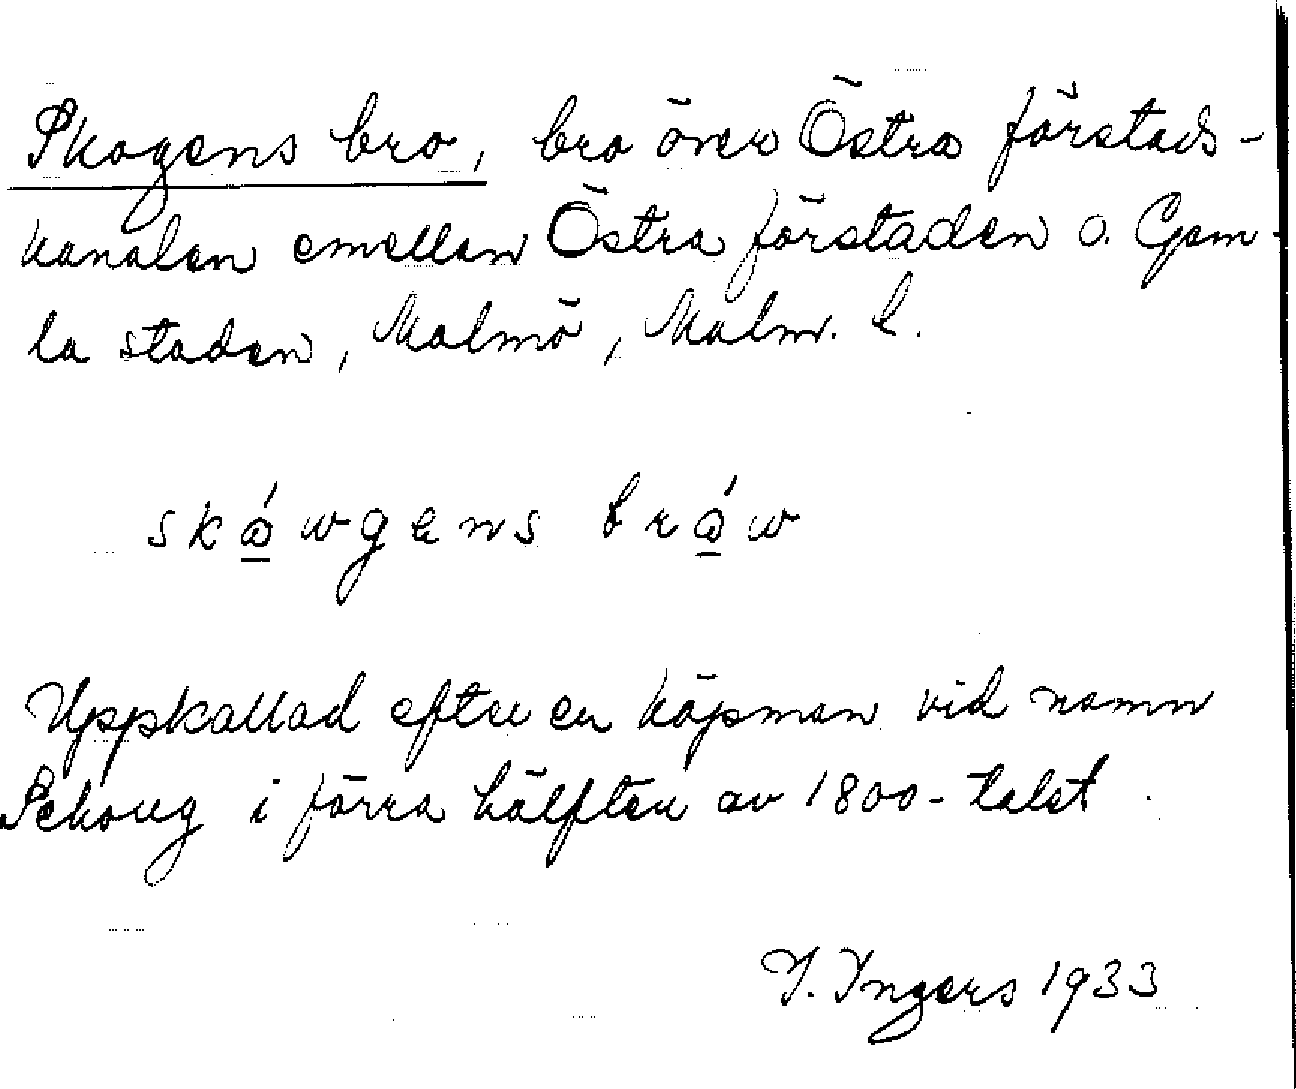 Skogens bro, bro över Östra förstads-
kanalen emellan Östra förstaden o. Gam-
la staden, Malmö, Malm. L.
skώ́wgens brώ́w
Uppkallad efter en köpman vid namn
Schoug i förra hälften av 1800-talet.
I. Ingers 1933